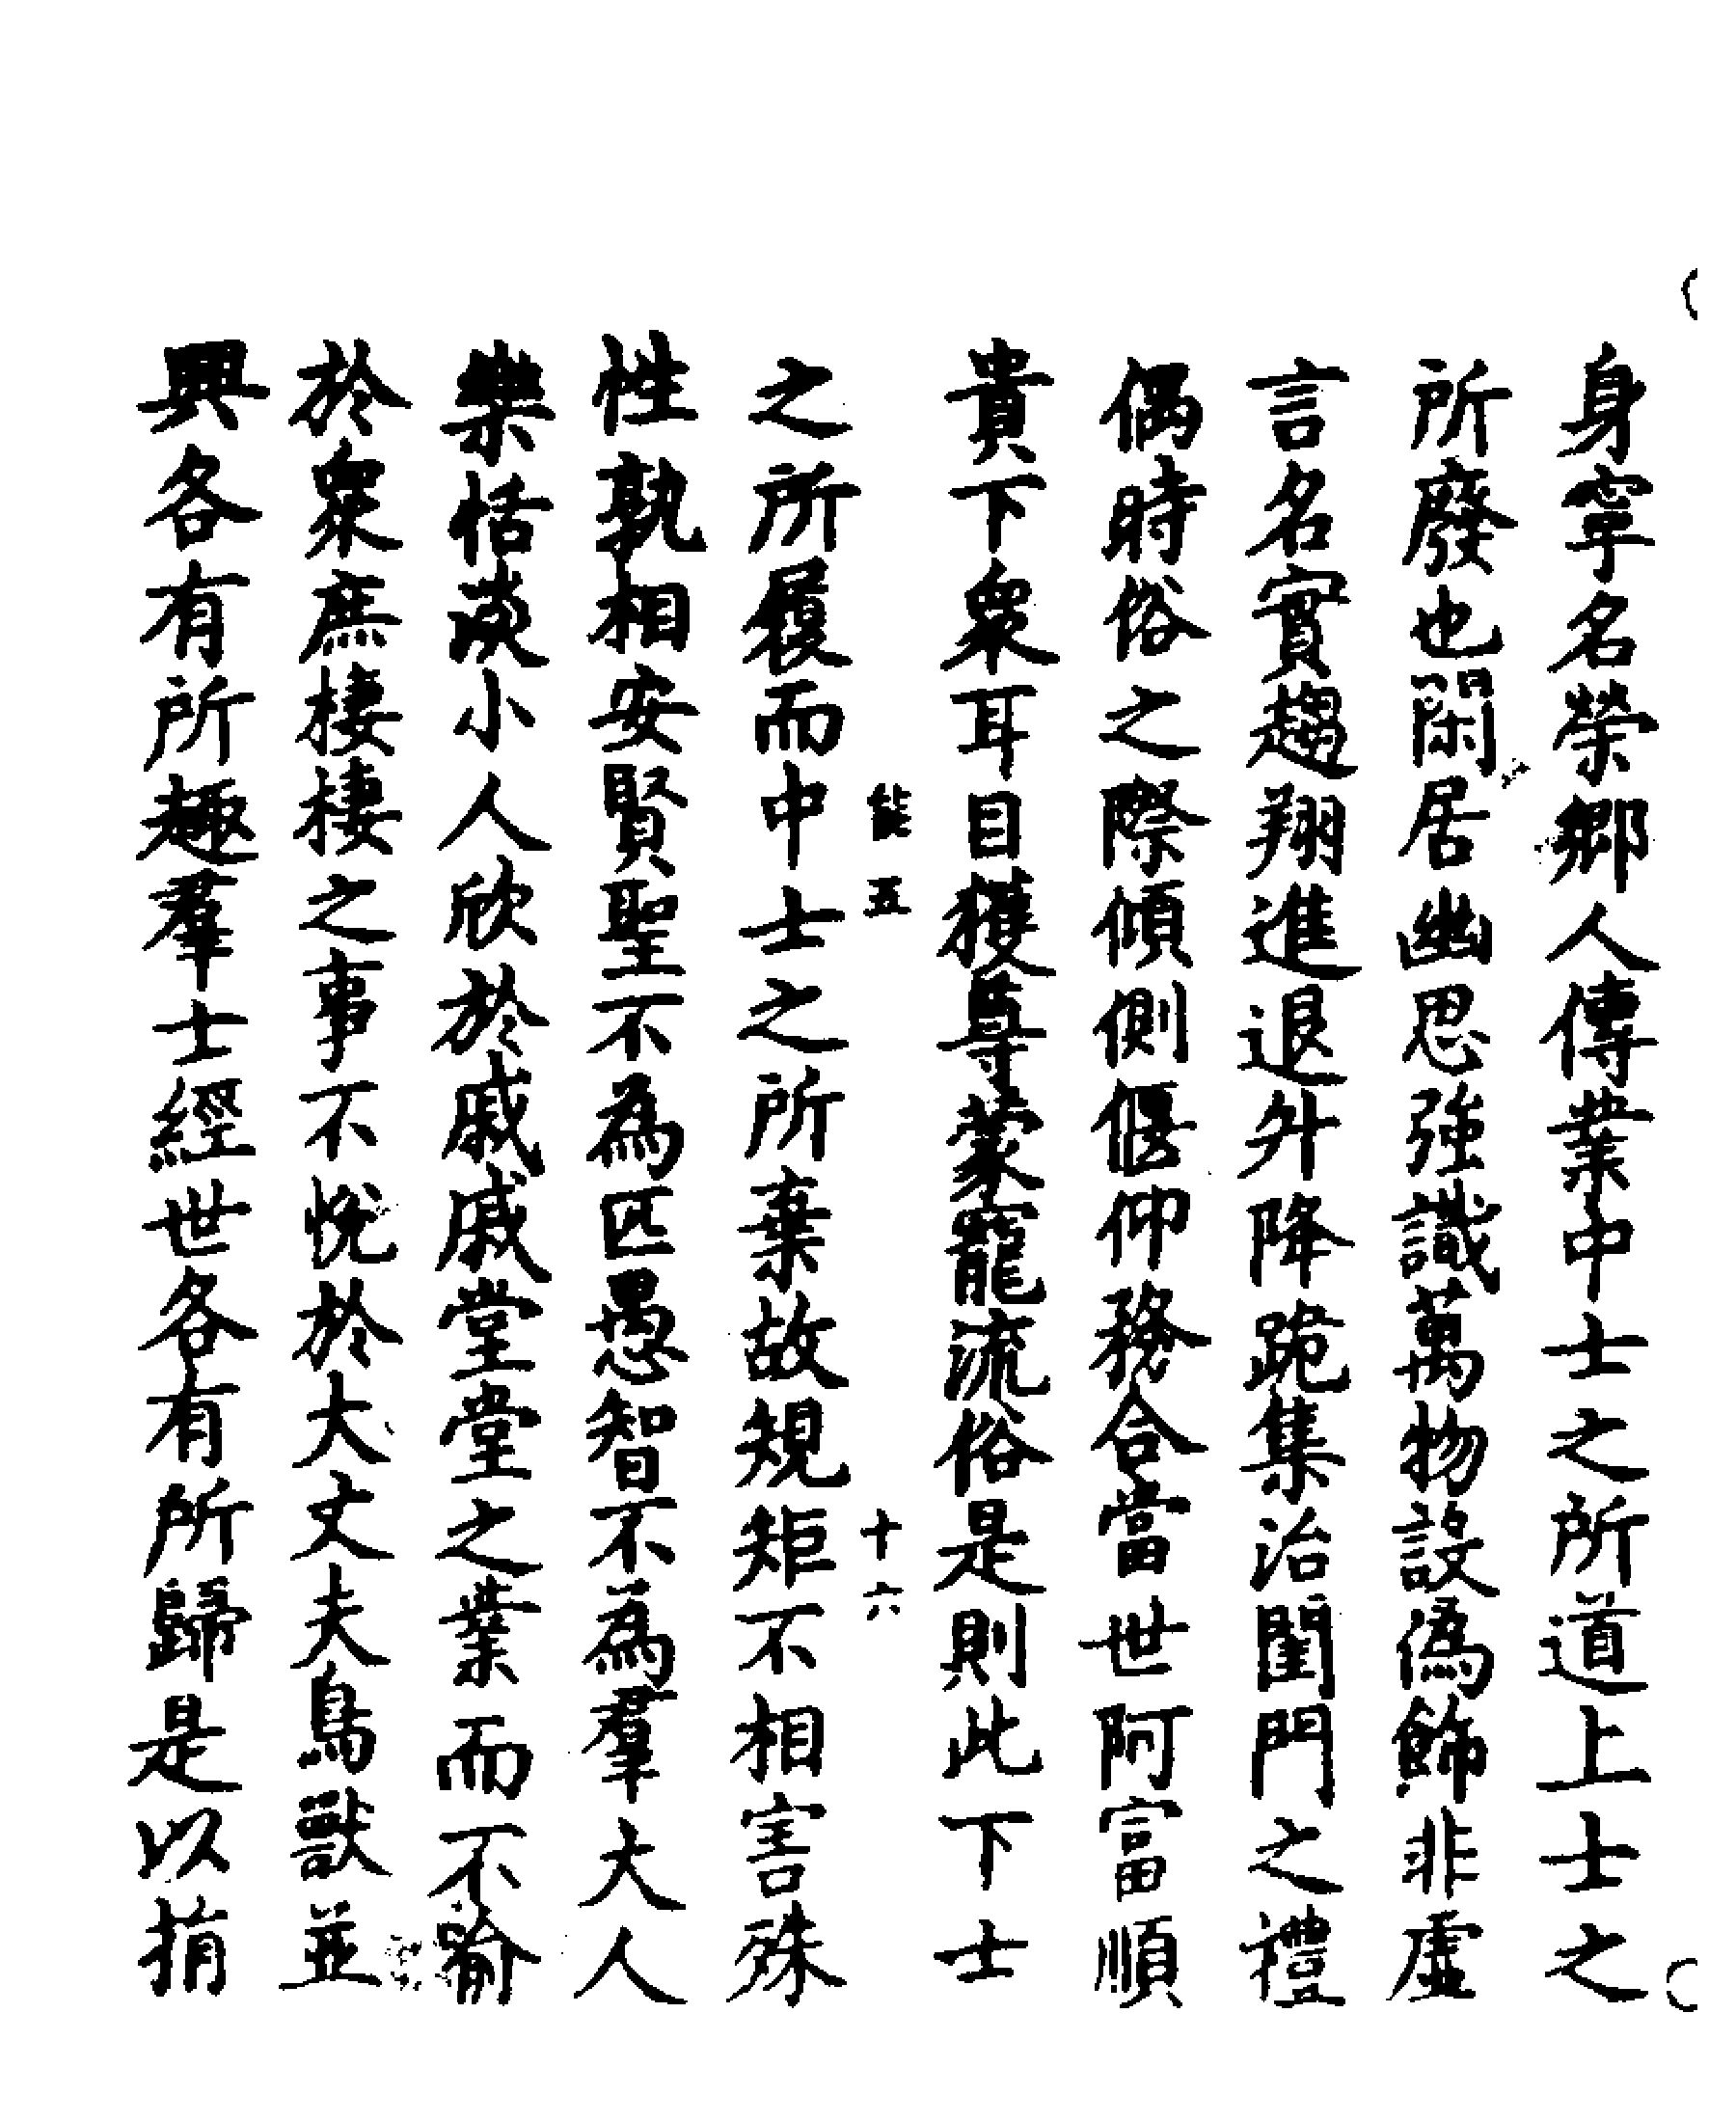 身寧名榮鄉人傳業中士之所道上士之
所廢也閑居幽思強識萬物設偽飾非虛
言名實趨翔進退升降跪集治閨門之禮
偶時俗之際傾側偃仰務合當世阿富順
貴下衆耳目獲尊蒙寵流俗是則此下士
能五 十六
之所履而中士之所棄故規矩不相害殊
性孰相安賢聖不為匹愚智不為羣大人
樂恬淡小人欣於戚戚堂堂之業而不喻
於衆庶棲棲之事不悅於大丈夫鳥獸並
興各有所趣羣士經世各有所歸是以捐